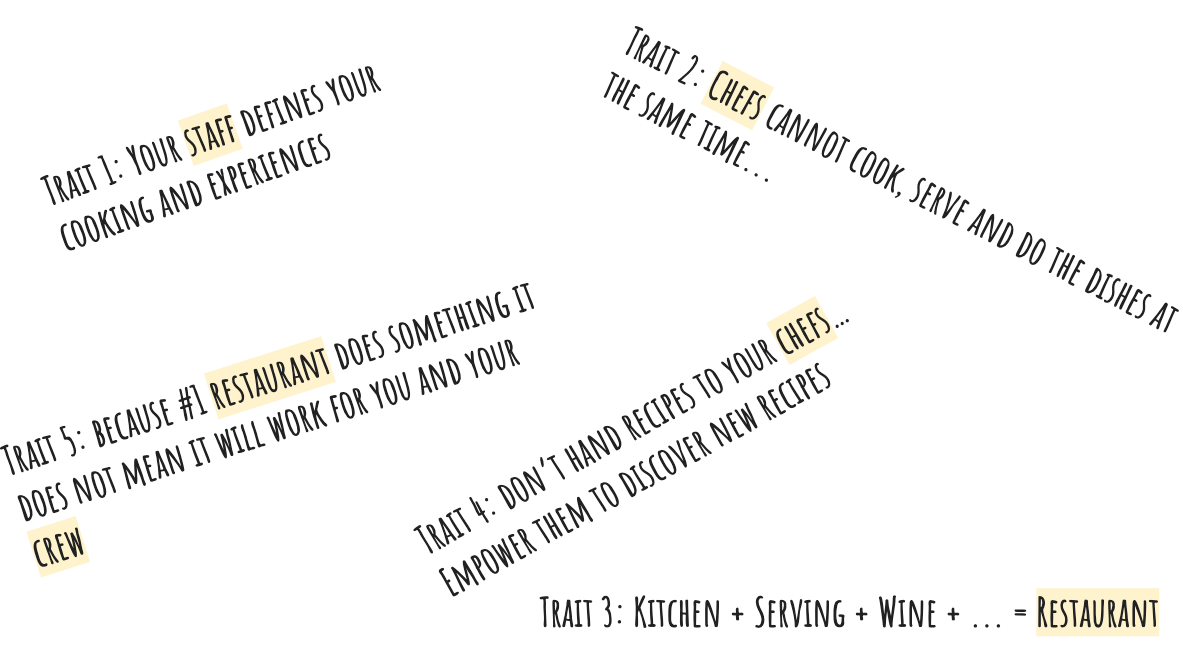 Trait 1: Your staff defines your
cooking and experiences
Trait 2: Chefs cannot cook, serve and do the dishes at
the same time...
Trait 5: because #1 restaurant does something it
does not mean it will work for you and your
crew
Trait 4: don't hand recipes to your chefs...
Empower them to discover new recipes
Trait 3: Kitchen + Serving + Wine + ... = Restaurant